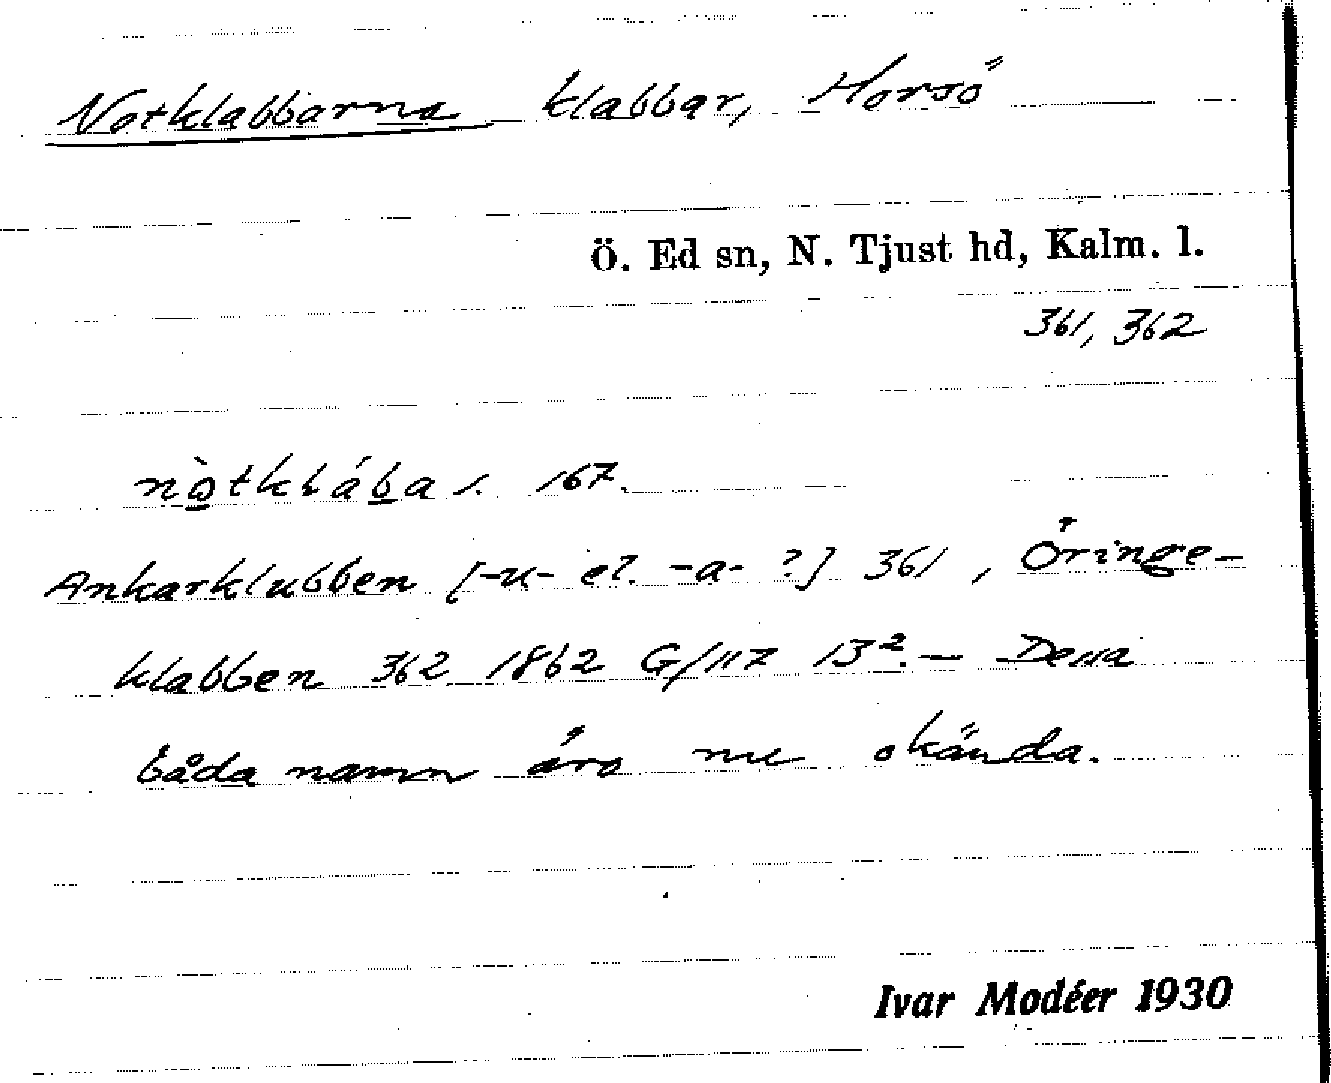 Notklabbarna klabbar, Horsö
Ö. Ed sn, N. Tjust hd, Kalm. l.
361, 362
nòtklába 1. 167.
Ankarklubben [-u- el. -a- ?] 361, Öringe-
klabben 362 1862 G/117 13². — Dessa
båda namn äro nu okända.
Ivar Modéer 1930